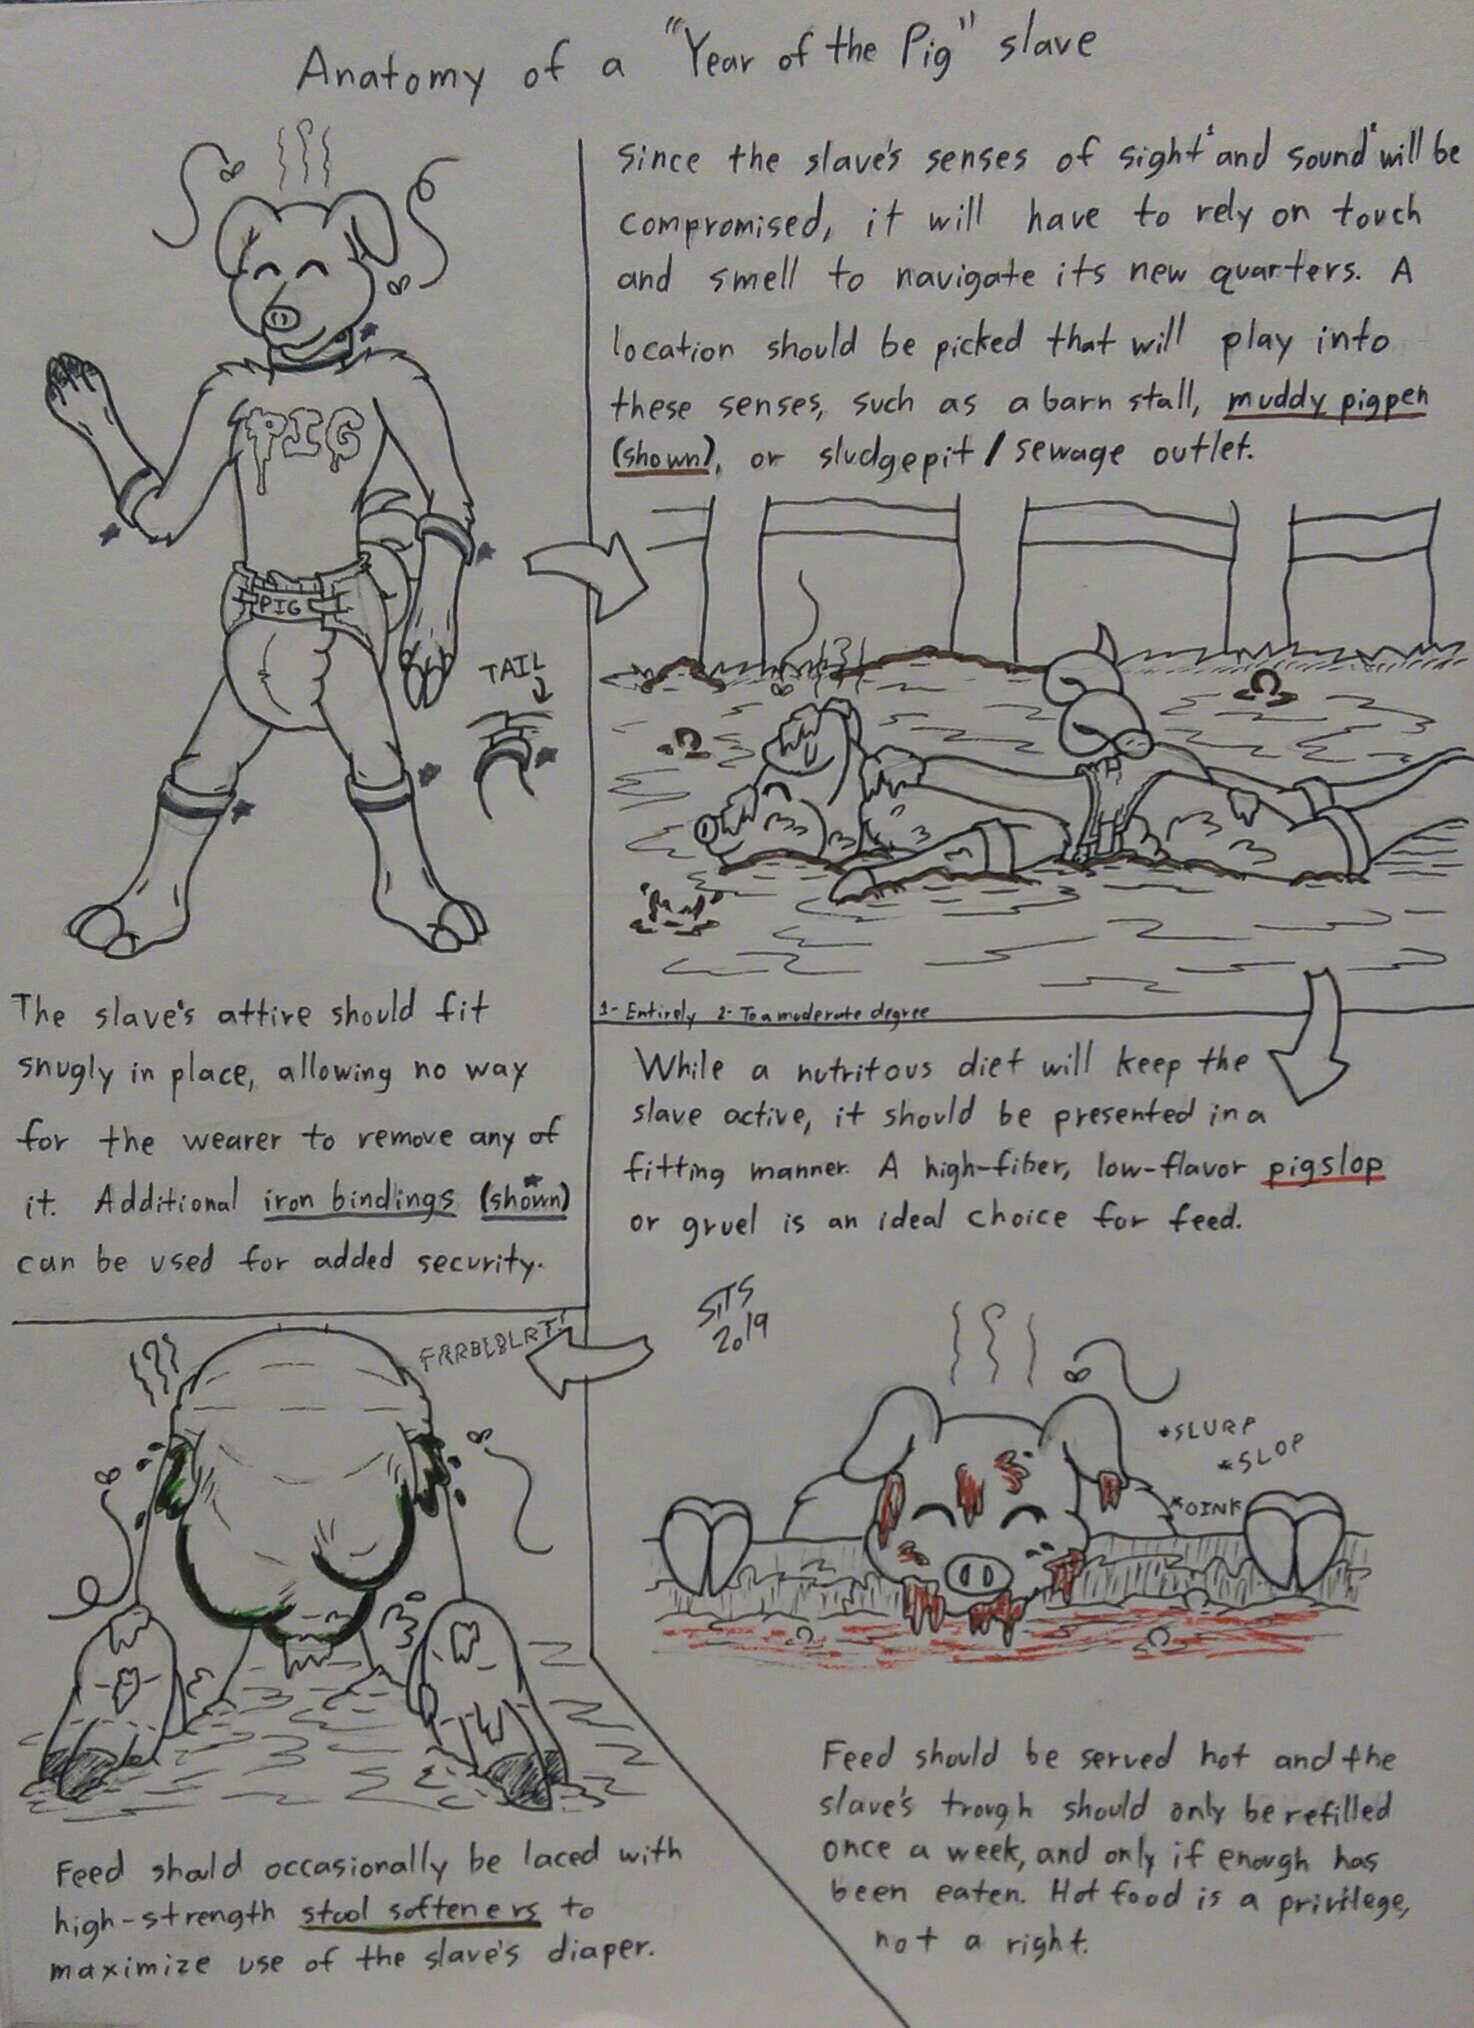 Anatomy of a "Year of the Pig" slave
PIG
PIG
TAIL
The slave's attire should fit
snugly in place, allowing no way
for the wearer to remove any of
it. Additional iron bindings (shown)
can be used for added security.
Since the slave's senses of sight¹ and sound² will be
compromised, it will have to rely on touch
and smell to navigate its new quarters. A
location should be picked that will play into
these senses, such as a barn stall, muddy pigpen
(shown), or sludgepit/sewage outlet.
1- Entirely 2- To a moderate degree
While a nutritous diet will keep the
slave active, it should be presented in a
fitting manner. A high-fiber, low-flavor pigslop
or gruel is an ideal choice for feed.
SITS
2019
*SLURP
*SLOP
*OINK
Feed should be served hot and the
slave's trough should only be refilled
once a week, and only if enough has
been eaten. Hot food is a privilege,
not a right.
FRRBLBLRT!
Feed should occasionally be laced with
high-strength stool softeners to
maximize use of the slave's diaper.